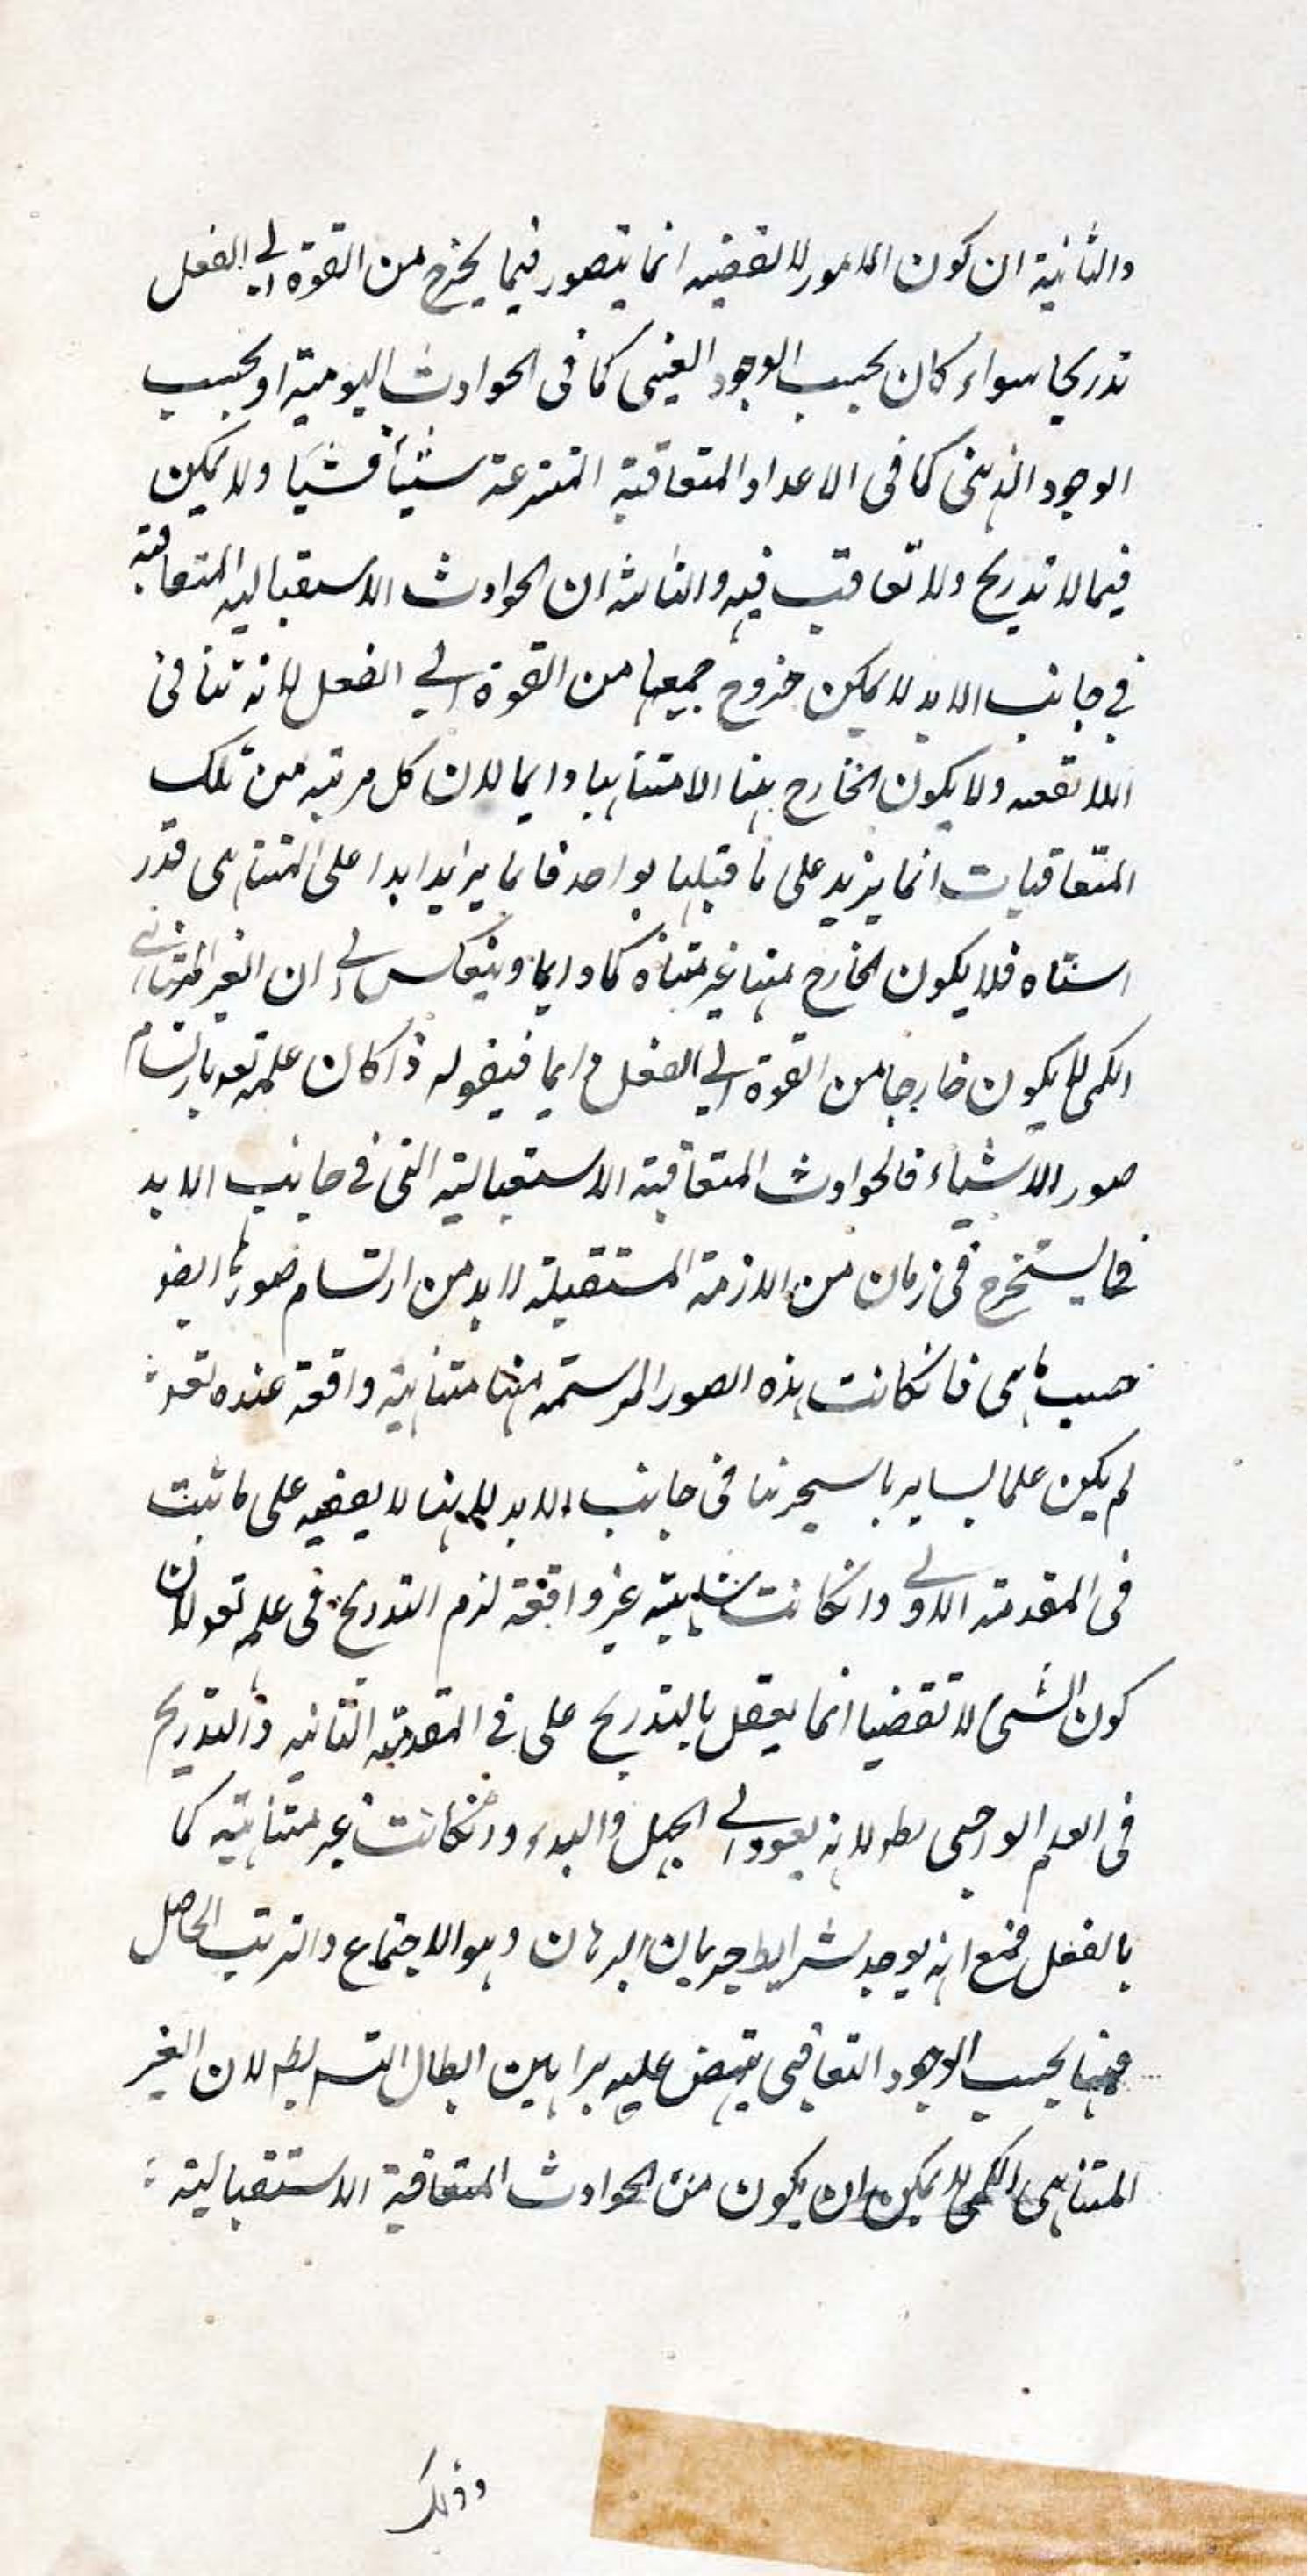 والثانية ان كون الامور لا تقضيه انما يتصور فيما يخرج من القوة الى الفعل
تدريجا سواء كان بحسب الوجود العينى كما فى الحوادث اليومية او بحسب
الوجود الذهنى كما فى الاعداد المتعاقبة المنتزعة شيئا فشيئا ولا يمكن
فيما لا تدريج ولا تعاقب فيه والثالثة ان الحوادث الاستقبالية المتعاقبة
فى جانب الابد لا يمكن خروج جميعها من القوة الى الفعل لانه تنافى
اللاتقفه ولا يكون الخارج منها الا متناهيا دايما لان كل مرتبه من تلك
المتعاقبات انما يزيد على ما قبلها بواحد فانما يزايد ابدا على المتناهى قدر
متناه فلا يكون الخارج منها غير متناه كما دايما وينعكس الى ان الغير المتناهى
الكمى لا يكون خارجا من القوة الى الفعل دايما فيقوله اذا كان علمه تعه بارتسام
صور الاشياء فالحوادث المتعاقبة الاستقبالية التى فى جانب الابد
فما يستخرج فى زمان من الازمنة المستقبلة لا بد من ارتسام صورها ايضو
حسب ما هى فانكانت هذه الصور المرتسمه منها متناهية واقعة عنده تعه
لم يكن علما بساير ما سيحدثنا فى جانب الابد لانها لا يقفيه على ما ثبت
فى المقدمة الاولى وانكانت متناهية غير واقفة لزم التدريج فى علمه تعو لان
كون الشىء لا تقفيا انما يعقل بالتدريج على فى المقدمة الثانيه والتدريج
فى العلم الواجبى بطه لانه يعود الى الجهل والبدء وانكانت غير متناهية كما
بالفعل فمع انه يوجد شرايط جريان البرهان وهو الاجتماع والترتيب الحاصل
منها بحسب الوجود التعاقبى ينهض عليه براهين ابطال التسه بطه لان الغير
المتناهى الكمى لا يمكن ان يكون من الحوادث المتعاقبة الاستقبالية
وذلك